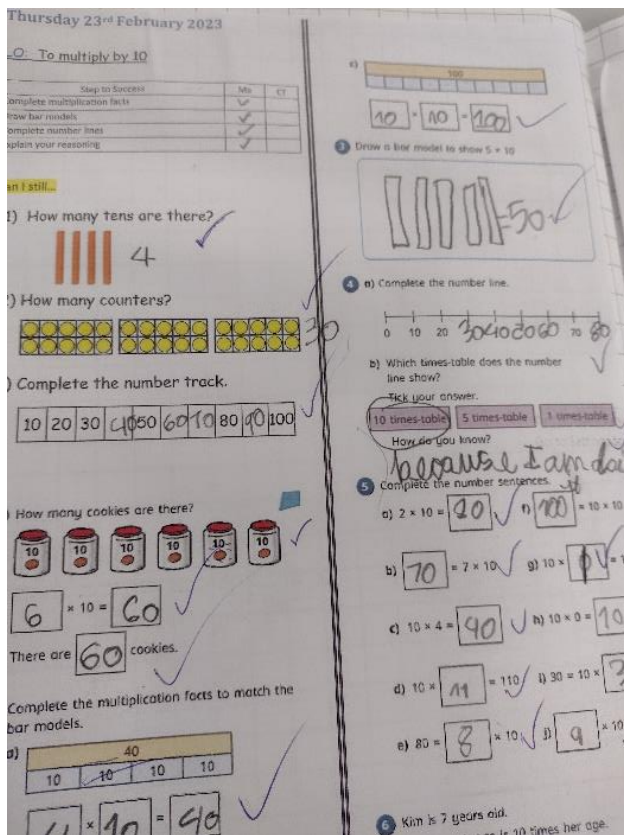 Thursday 23rd February 2023
LO: To multiply by 10
Step to Success Me CT
Complete multiplication facts
Draw bar models
Complete number lines
Explain your reasoning
an I still...
1) How many tens are there?
4
2) How many counters?
30
) Complete the number track.
10 20 30 40 50 60 70 80 90 100
How many cookies are there?
10 10 10 10 10 10
6 × 10 = 60
There are 60 cookies.
Complete the multiplication facts to match the
bar models.
a) 40
10 10 10 10
4 × 10 = 40
c) 100
10 × 10 = 100
3 Draw a bar model to show 5 × 10
=50
4 a) Complete the number line.
0 10 20 30 40 50 60 70 80
b) Which times-table does the number
line show?
Tick your answer.
10 times-table 5 times-table 1 times-table
How do you know?
because I am
5 Complete the number sentences.
a) 2 × 10 = 20 f) 100 = 10 × 10
b) 70 = 7 × 10 g) 10 ×
c) 10 × 4 = 40 h) 10 × 0 = 10
d) 10 × 11 = 110 i) 30 = 10 × 3
e) 80 = 8 × 10 j) 9 × 10
6 Kim is 7 years old.
10 times her age.